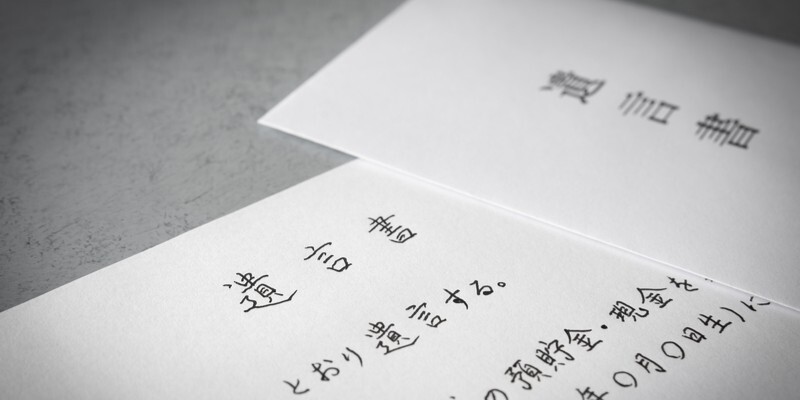 遺言書
遺言書
とおり遺言する。
の預貯金・現金を
年〇月〇日生)に